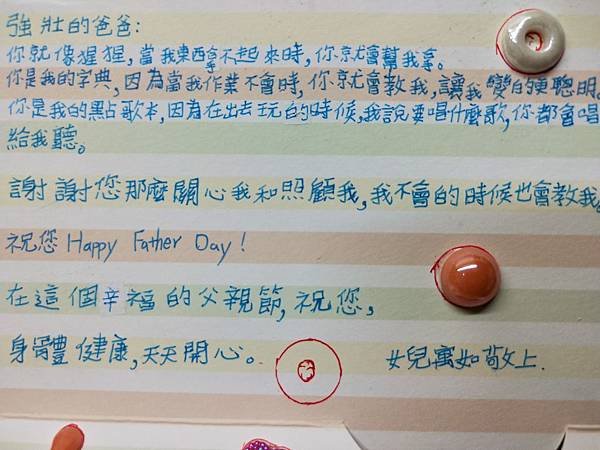 強壯的爸爸:
你就像猩猩,當我東西拿不起來時,你就會幫我拿。
你是我的字典,因為當我作業不會時,你就會教我,讓我變的更聰明。
你是我的點歌本,因為在出去玩的時候,我說要唱什麼歌,你都會唱
給我聽。
謝謝您那麼關心我和照顧我,我不會的時候也會教我。
祝您 Happy Father Day!
在這個幸福的父親節,祝您,
身體健康,天天開心。
女兒寓如敬上.